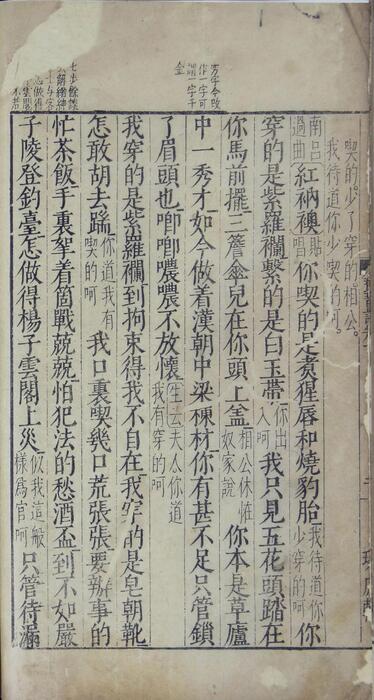 芳字令改
作一字可
謂一字千
金
喫的少了穿的相公
我待道你少喫的呵
南呂過曲紅衲襖貼唱你喫的是煮猩唇和燒豹胎我待道你少穿的呵你
穿的是紫羅襴繫的是白玉帶你出入呵我只見五花頭踏在
你馬前擺三簷傘兒在你頭上蓋相公休恠奴家說你本是草廬
中一秀才如今做着漢朝中梁棟材你有甚不足只管鎖
了眉頭也唧唧噥噥不放懷生云夫人你道我有穿的呵
我穿的是紫羅襴到拘束得我不自在我穿的是皂朝靴
怎敢胡去踹你道我有喫的呵我口裏喫幾口荒張張要辦事的
忙茶飯手裏拏着箇戰兢兢怕犯法的愁酒盃到不如嚴
子陵登釣臺怎做得楊子雲閣上災似我這般樣爲官呵只管待漏